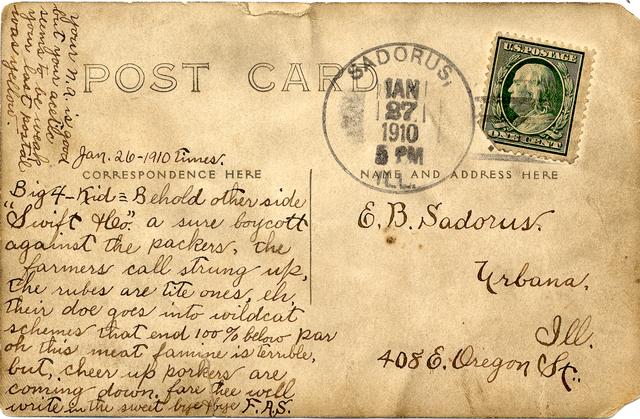 your N.A. is good
but your acello
seems to be weak
your last postal
was yellow.
POST CARD
SADORUS,
JAN
27
1910
5 PM
ILL.
U.S. POSTAGE
ONE CENT
Jan. 26-1910 times.
CORRESPONDENCE HERE
NAME AND ADDRESS HERE
Big 4-Kid = Behold other side
"Swift &Co". a sure boycott
against the packers, the
farmers call strung up,
the rubes are tite ones, eh,
their doe goes into wildcat
schemes that end 100% below par
oh this meat famine is terrible,
but, cheer up porkers are
coming down. fare thee well
write in the sweet bye & bye F.A.S.
E. B. Sadorus.
Urbana.
Ill.
408 E. Oregon St.